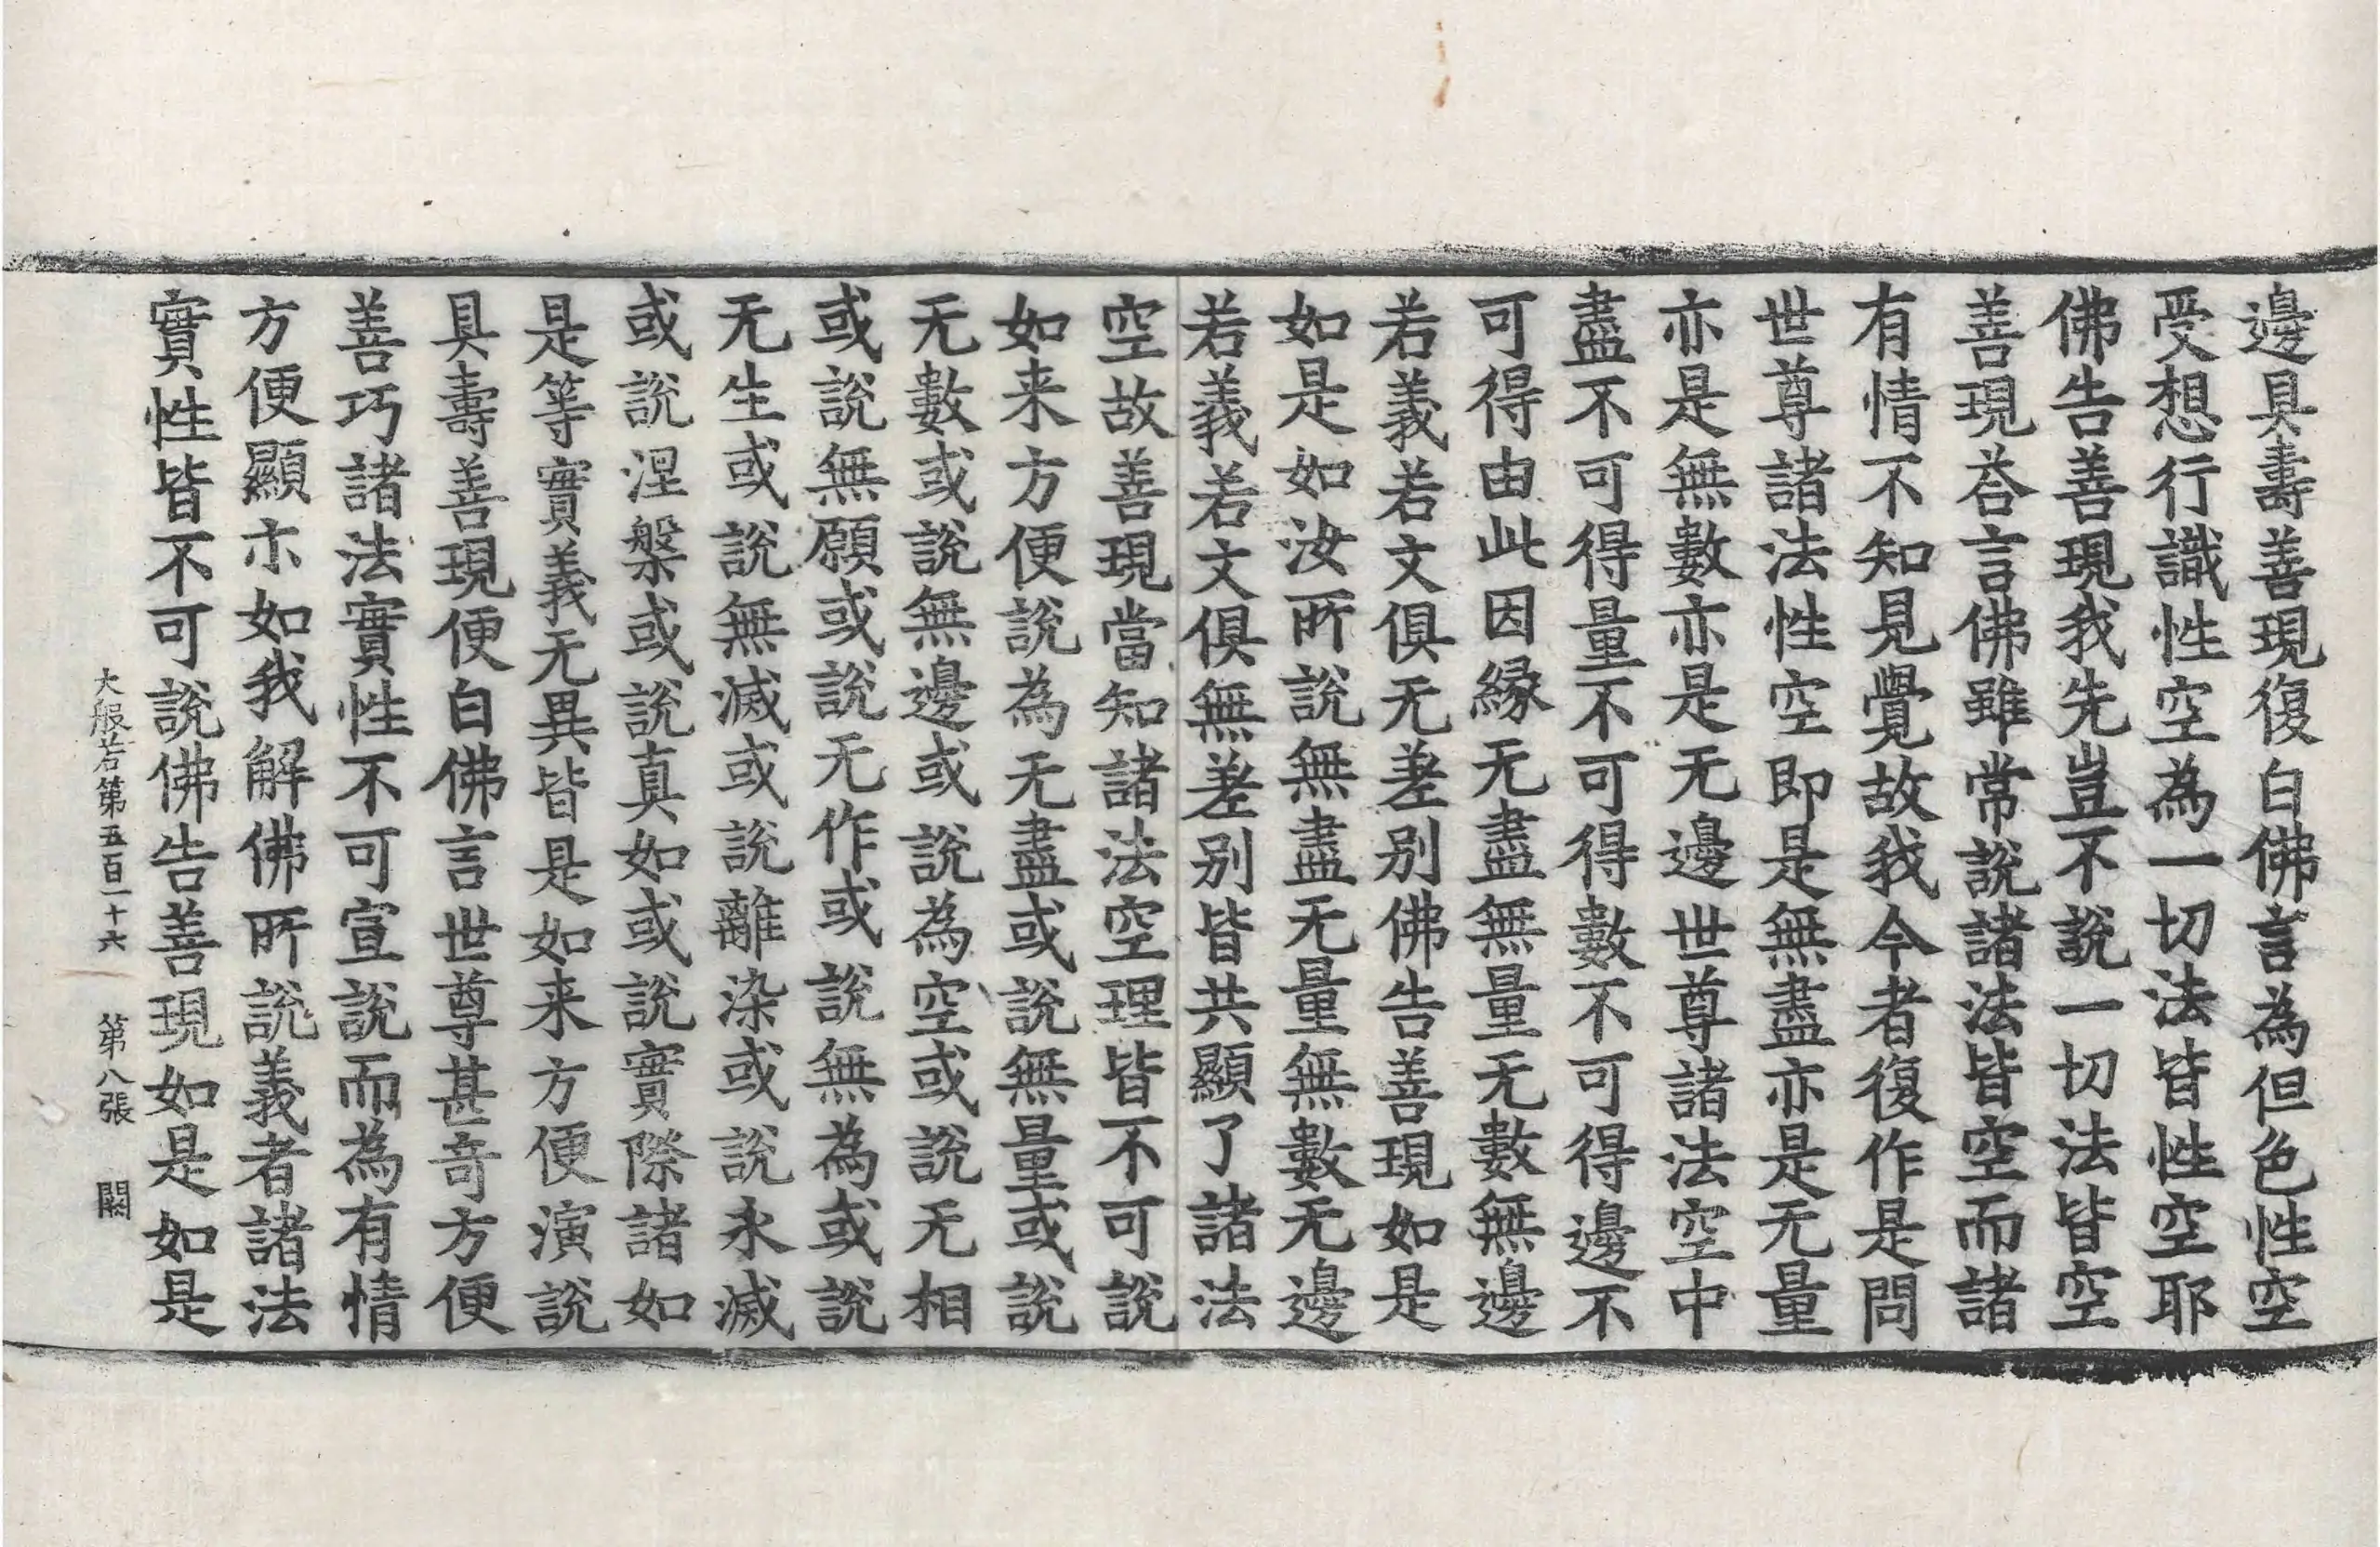 邊具壽善現復白佛言為但色性空
受想行識性空為一切法皆性空耶
佛告善現我先豈不說一切法皆空
善現荅言佛雖常說諸法皆空而諸
有情不知見覺故我今者復作是問
世尊諸法性空即是無盡亦是无量
亦是無數亦是无邊世尊諸法空中
盡不可得量不可得數不可得邊不
可得由此因緣无盡無量无數無邊
若義若文俱无差別佛告善現如是
如是如汝所說無盡无量無數无邊
若義若文俱無差別皆共顯了諸法
空故善現當知諸法空理皆不可說
如来方便說為无盡或說無量或說
无數或說無邊或說為空或說无相
或說無願或說无作或說無為或說
无生或說無滅或說離染或說永滅
或說涅槃或說真如或說實際諸如
是等實義无異皆是如来方便演說
具壽善現便白佛言世尊甚奇方便
善巧諸法實性不可宣說而為有情
方便顯示如我解佛所說義者諸法
實性皆不可說佛告善現如是如是
大般若第五百二十六 第八張 闕